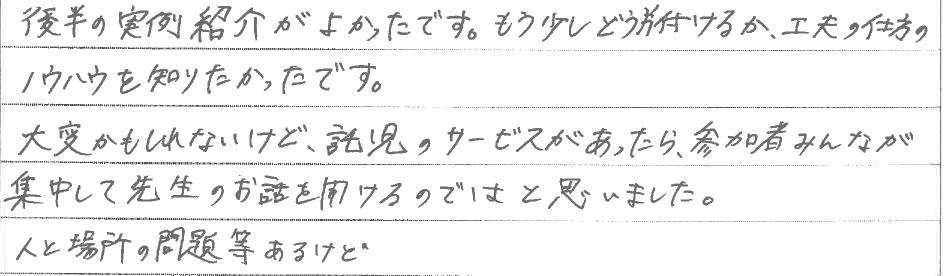 後半の実例紹介がよかったです。もう少しどう片付けるか、工夫の仕方の
ノウハウを知りたかったです。
大変かもしれないけど、託児のサービスがあったら、参加者みんなが
集中して先生のお話を聞けるのではと思いました。
人と場所の問題等あるけど